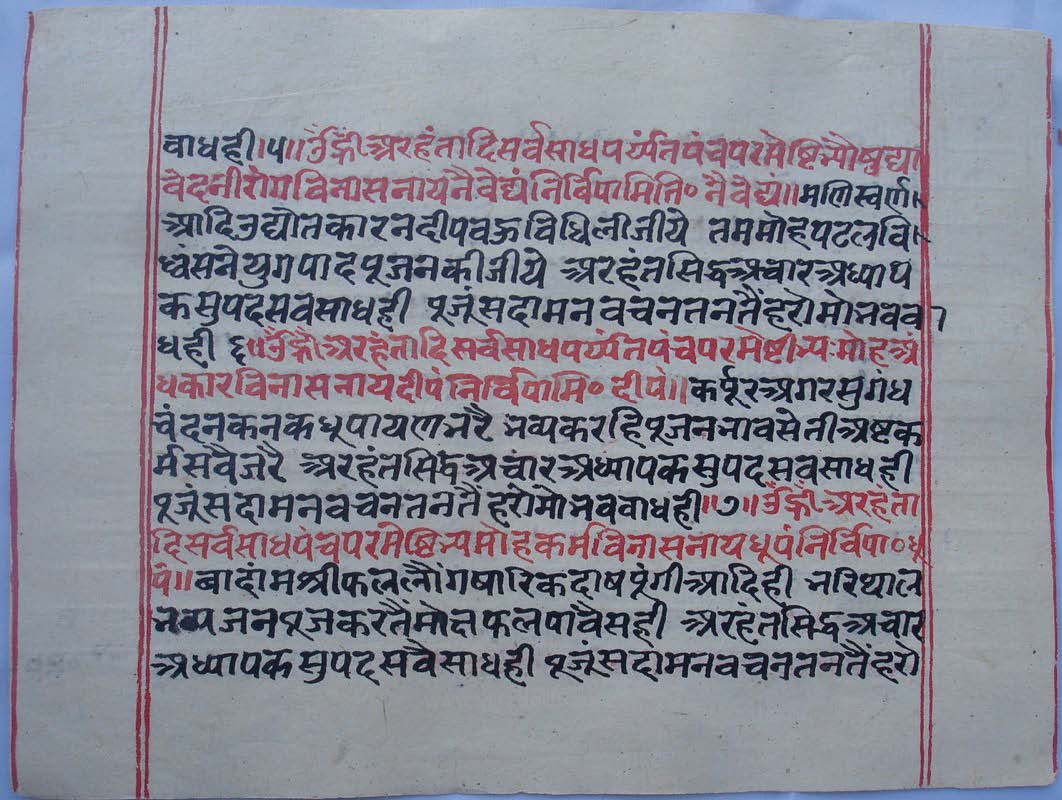 वाधही।५।।ॐह्रीं अरहंतादिसर्वसाधपर्य्यंतपंचपरमेष्टिभ्यो
वेदनीरोगविनासनायनैवेद्यंनिर्विपामिति० नैवेद्यं।।मणिस्वर्ण
आदिउद्योतकारनदीपवऊविधिलीजीये तममोहपटलवि
ध्वंसनेयुगपादपूजनकीजीये अरहंतसिद्धअचारअध्याप
कसुपदसवसाधही पूजुंसदामनवचनतनतैंहरोमोभवव
धही ६।।ॐह्रीं अरहंतादिसर्वसाधपर्य्यंतपंचपरमेष्टीभ्यःमोहअं
धकारविनासनायदीपंनिर्विपामि० दीपं।।कर्पूरअगरसुगंध
चंदनकनकधूपायणभरै भव्यकरहिपूजनभावसेतीअष्टक
र्मसवैजरै अरहंतसिद्धअचारअध्यापकसुपदसवसाधही
पूजुंसदामनवचनतनतैंहरोमोभववाधही।।७।।ॐह्रीं अरहंता
दिसर्वसाधपंचपरमेष्टिभ्यमोहकर्मविनासनायधूपंनिर्विपा०धू
पं।।बादांमश्रीफललौंगषारिकदाषपुंगीआदिही भरिथाल
भव्यजनपूजकरतैमोक्षफलपांवैसही अरहंतसिद्धअचार
अध्यापकसुपदसवैसाधही पूजुंसदामनवचनतनतैंहरो